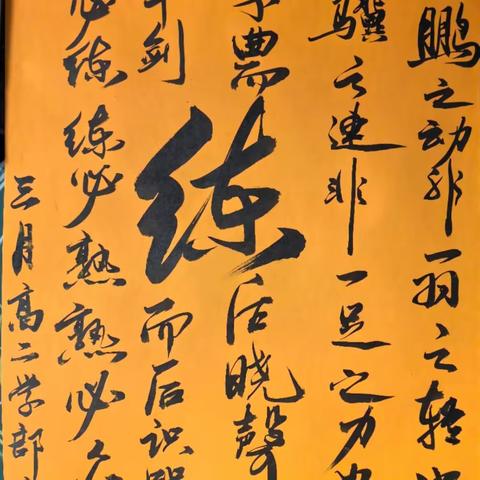 鹏之动非一羽之轻
骥之速非一足之力
曲而后晓聲
练
剑而后识
必练练必熟熟必
三月高二学部